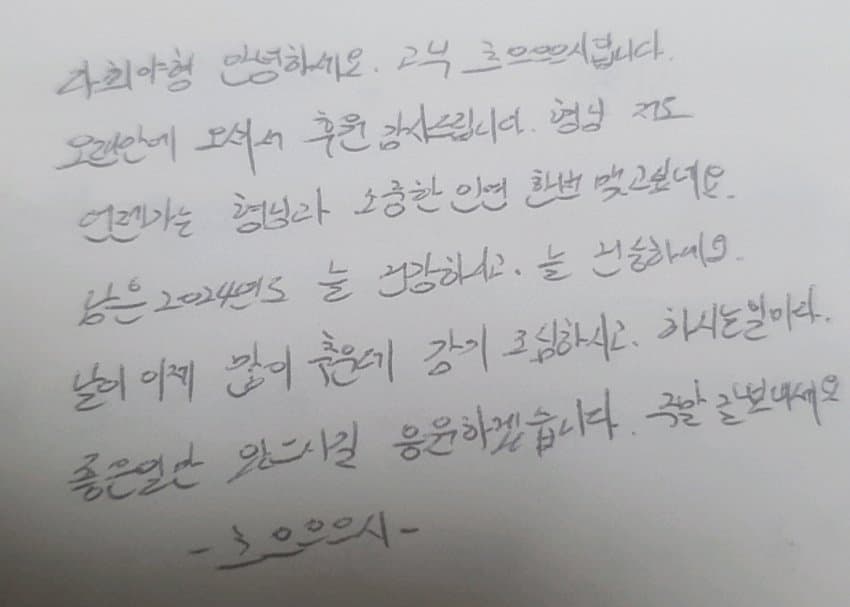 사회야형 안녕하세요. 고닉 흐으으으시입니다.
오랜만에 오셔서 후원 감사드립니다. 형님 저도
언젠가는 형님과 소중한 인연 한번 맺고보네요.
남은 2024년도 늘 건강하시고. 늘 건승하세요.
날이 이제 많이 추운데 감기 조심하시고. 하시는일마다.
좋은일만 있으시길 응원하겠습니다. 주말 잘보내세요
- 흐으으으시 -